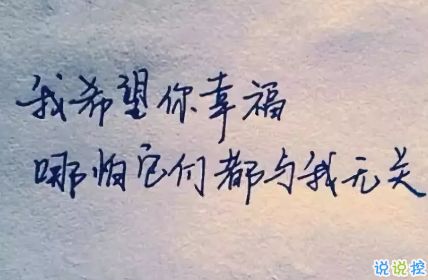 我希望你幸福
哪怕它们都与我无关
说说控